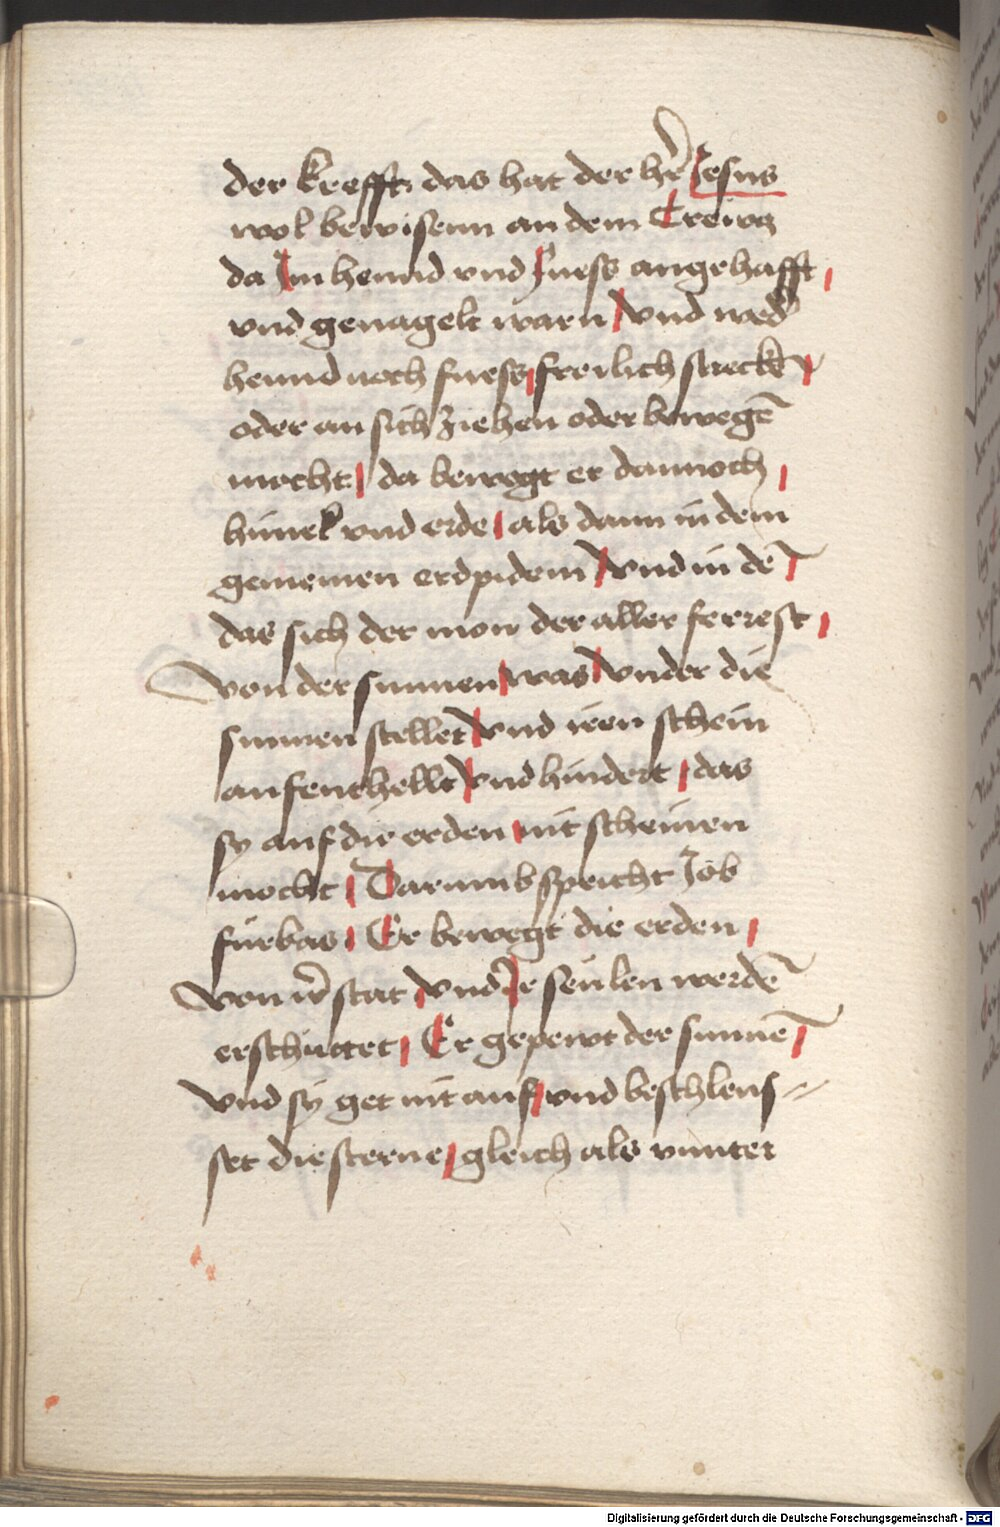 der krefft das hat der hr̄ Jesus
wol bewisenn an dem Creiwtz
da Jm hennd vnd Fuess angehafft
vnd genagelt warn vnd wed̄
hennd noch fuess freilich streckē
oder an sich ziehen oder bewegē
mocht da bewegt er dannoch
himel vnd erde als dann in dem
gemeinen erdpidem vnd in dē
das sich der mon der aller ferrest
von der sunnen was vnder die
sunnen stellet vnd iren schein
aufenthellt vnd hindert das
sy auf die erden nit scheinen
mocht Darumb spricht Job
fürbas Er bewegt die erden
von ir̄ stat vnd Ir seulen werdē
erschuttet Er gepewt der sunnē
vnd sy get nit auf vnd beschleus //
set die sterne gleich als vnnter
Digitalisierung gefördert durch die Deutsche Forschungsgemeinschaft - DFG